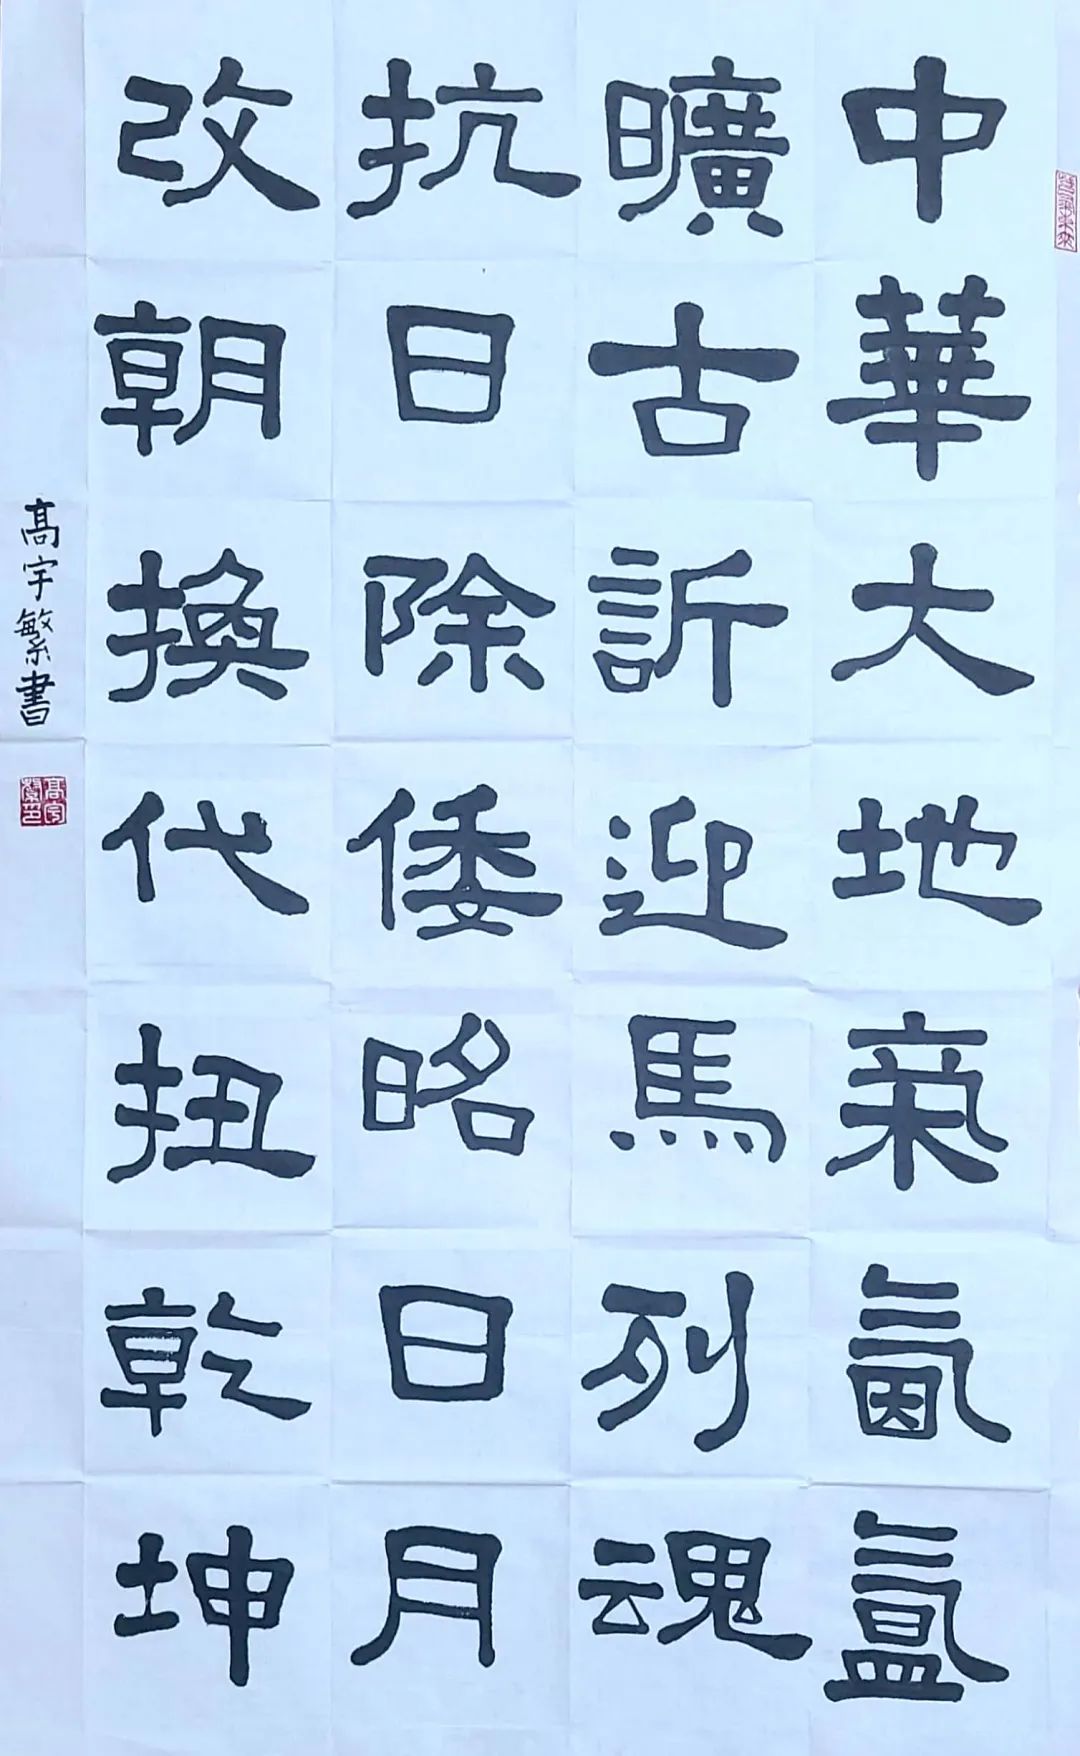 中華大地氣氤氲
曠古訢迎馬列魂
抗日除倭昭日月
改朝換代扭乾坤
髙宇繁書
高宇繁印